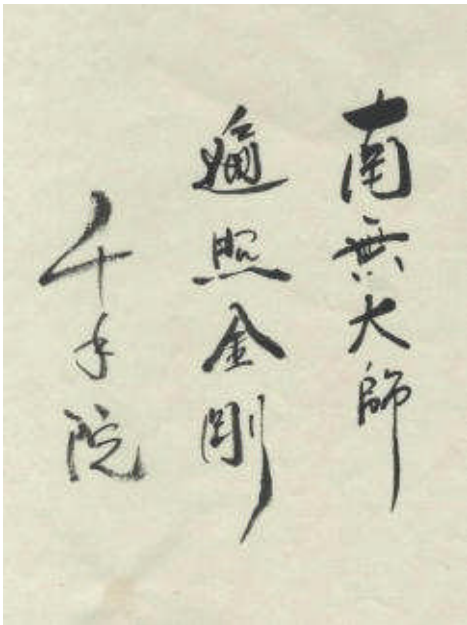 南無大師
遍照金剛
千手院